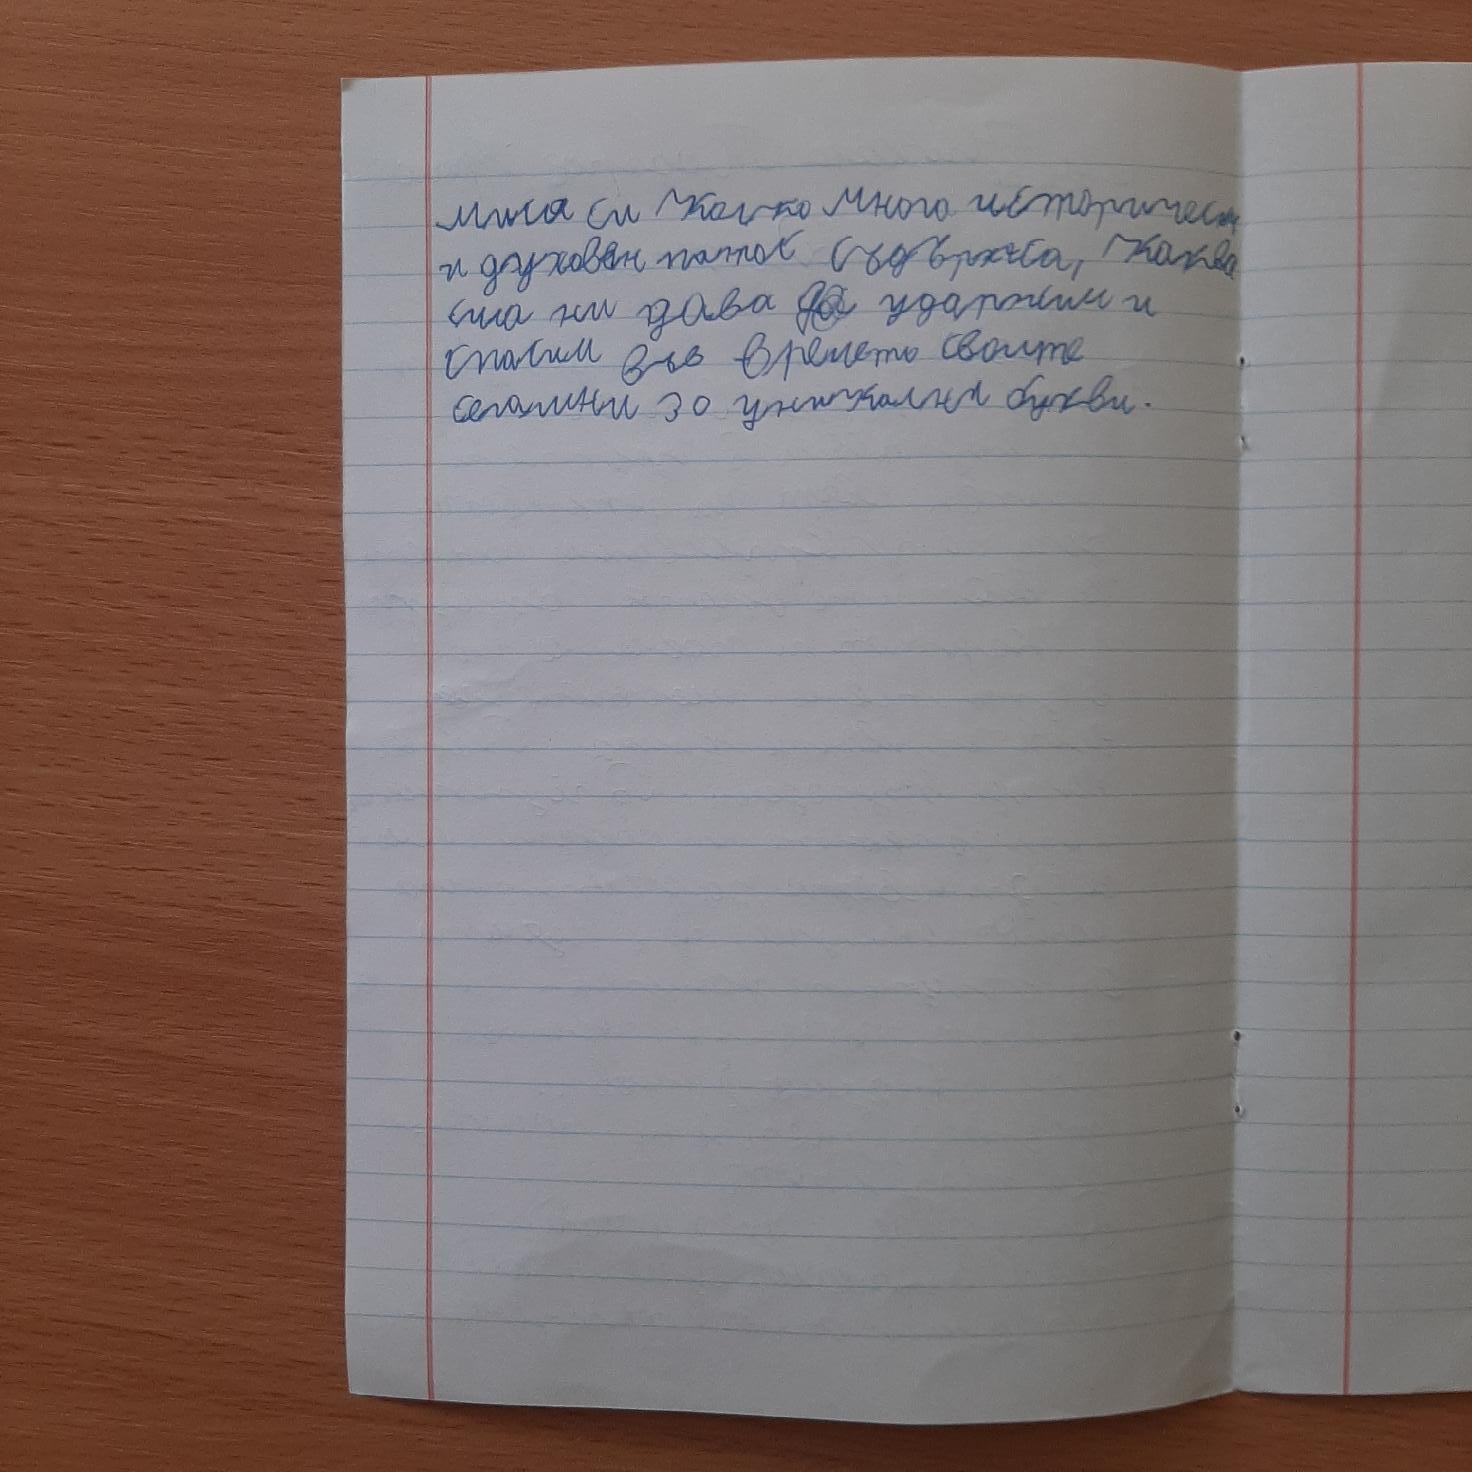 мися си колко много исторически
и духовен патос съдържа, каква
сила ни дава да удържим и
спасим във времето своите
сегамни 30 уникални букви.